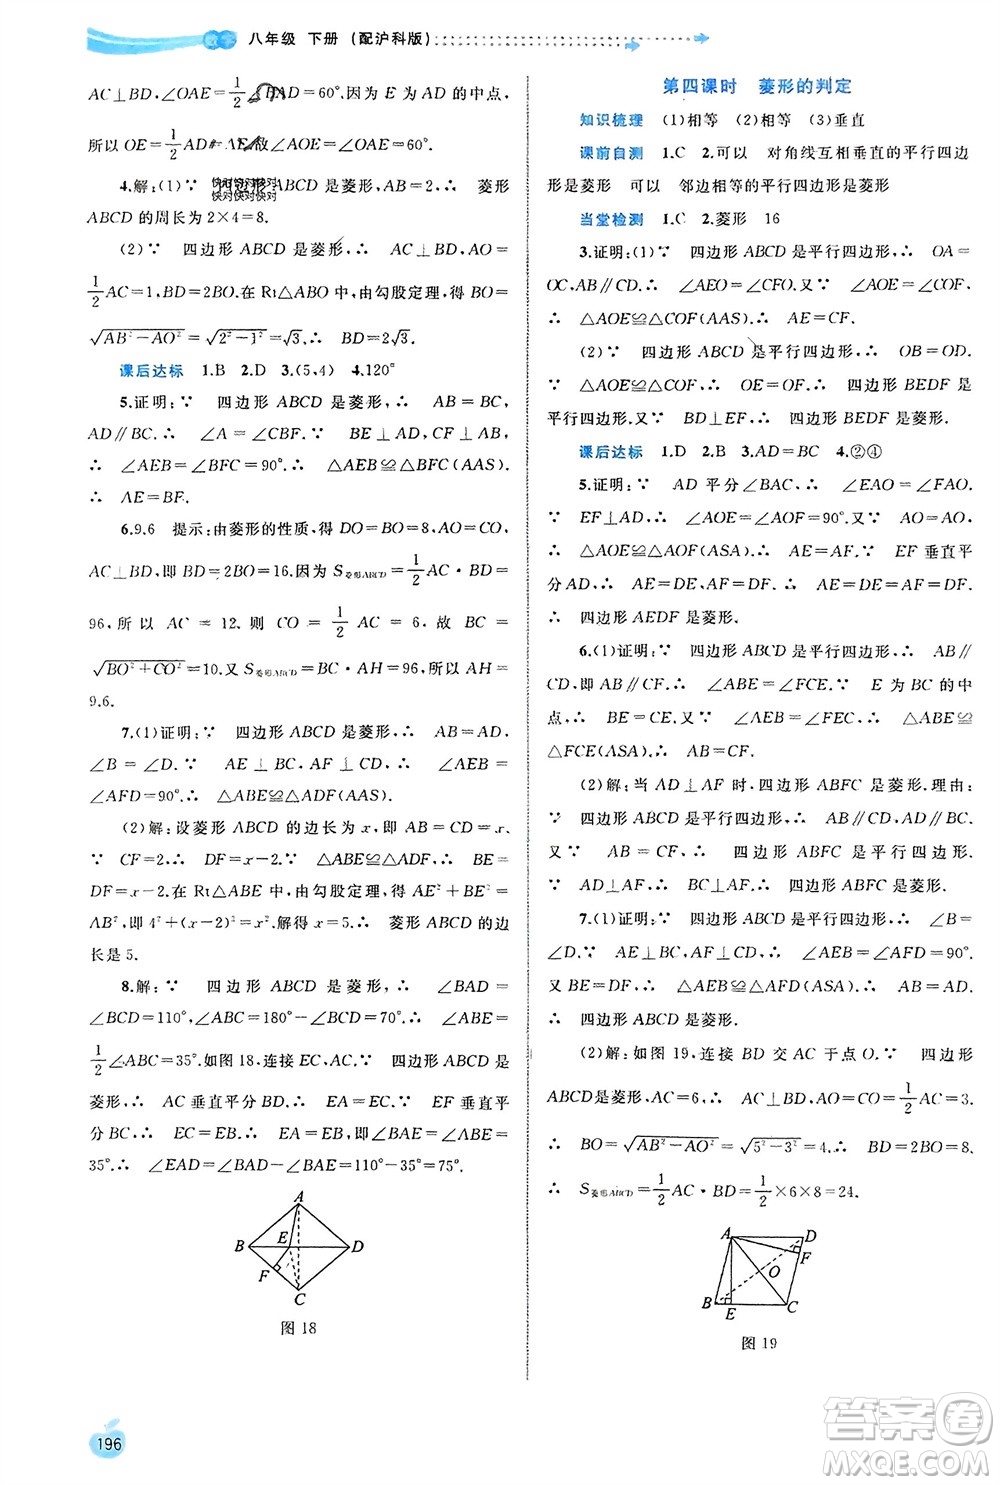 数学 八年级 下册 (配沪科版)
AC⊥BD,∠OAE=1/2∠BAD=60°.因为 E 为 AD 的中点,
所以 OE=1/2AD=AE,故∠AOE=∠OAE=60°.
4.解:(1)∵ 四边形 ABCD 是菱形,AB=2,∴ 菱形
快对快对快对
快对快对快对
ABCD 的周长为 2×4=8.
(2)∵ 四边形 ABCD 是菱形,∴ AC⊥BD,AO=
1/2AC=1,BD=2BO.在 Rt△ABO 中,由勾股定理,得 BO=
√(AB²-AO²)=√(2²-1²)=√3.∴ BD=2√3.
课后达标 1.B 2.D 3.(5,4) 4.120°
5.证明:∵ 四边形 ABCD 是菱形,∴ AB=BC,
AD∥BC.∴ ∠A=∠CBF.∵ BE⊥AD,CF⊥AB,
∴ ∠AEB=∠BFC=90°.∴ △AEB≌△BFC(AAS).
∴ AE=BF.
6.9.6 提示:由菱形的性质,得 DO=BO=8,AO=CO,
AC⊥BD,即 BD=2BO=16.因为 S菱形ABCD=1/2AC·BD=
96,所以 AC=12.则 CO=1/2AC=6,故 BC=
√(BO²+CO²)=10.又 S菱形ABCD=BC·AH=96,所以 AH=
9.6.
7.(1)证明:∵ 四边形 ABCD 是菱形,∴ AB=AD,
∠B=∠D.∵ AE⊥BC,AF⊥CD,∴ ∠AEB=
∠AFD=90°.∴ △ABE≌△ADF(AAS).
(2)解:设菱形 ABCD 的边长为 x,即 AB=CD=x.
∵ CF=2,∴ DF=x-2.∵ △ABE≌△ADF,∴ BE=
DF=x-2.在 Rt△ABE 中,由勾股定理,得 AE²+BE²=
AB²,即 4²+(x-2)²=x².解得 x=5.∴ 菱形 ABCD 的边
长是 5.
8.解:∵ 四边形 ABCD 是菱形,∴ ∠BAD=
∠BCD=110°,∠ABC=180°-∠BCD=70°.∴ ∠ABE=
1/2∠ABC=35°.如图 18,连接 EC,AC.∵ 四边形 ABCD 是
菱形,∴ AC 垂直平分 BD.∴ EA=EC.∵ EF 垂直平
分 BC,∴ EC=EB.∴ EA=EB,∴ ∠BAE=∠ABE=
35°.∴ ∠EAD=∠BAD-∠BAE=110°-35°=75°.
A
B E D
F
C
图 18
196
第四课时 菱形的判定
知识梳理 (1)相等 (2)相等 (3)垂直
课前自测 1.C 2.可以 对角线互相垂直的平行四边
形是菱形 可以 邻边相等的平行四边形是菱形
当堂检测 1.C 2.菱形 16
3.证明:(1)∵ 四边形 ABCD 是平行四边形,∴ OA=
OC,AB∥CD.∴ ∠AEO=∠CFO.又∵ ∠AOE=∠COF,
∴ △AOE≌△COF(AAS).∴ AE=CF.
(2)∵ 四边形 ABCD 是平行四边形,∴ OB=OD.
∵ △AOE≌△COF,∴ OE=OF.∴ 四边形 BEDF 是
平行四边形.又∵ BD⊥EF,∴ 四边形 BEDF 是菱形.
课后达标 1.D 2.B 3.AD=BC 4.②④
5.证明:∵ AD 平分∠BAC,∴ ∠EAO=∠FAO.
∵ EF⊥AD,∴ ∠AOE=∠AOF=90°.又∵ AO=AO,
∴ △AOE≌△AOF(ASA).∴ AE=AF.∵ EF 垂直平
分 AD,∴ AE=DE,AF=DF.∴ AE=DE=AF=DF.
∴ 四边形 AEDF 是菱形.
6.(1)证明:∵ 四边形 ABCD 是平行四边形,∴ AB∥
CD,即 AB∥CF.∴ ∠ABE=∠FCE.∵ E 为 BC 的中
点,∴ BE=CE.又∵ ∠AEB=∠FEC,∴ △ABE≌
△FCE(ASA).∴ AB=CF.
(2)解:当 AD⊥AF 时,四边形 ABFC 是菱形.理由:
∵ 四边形 ABCD 是平行四边形,∴ AB∥CD,AD∥BC.
又∵ AB=CF,∴ 四边形 ABFC 是平行四边形.
∵ AD⊥AF,∴ BC⊥AF.∴ 四边形 ABFC 是菱形.
7.(1)证明:∵ 四边形 ABCD 是平行四边形,∴ ∠B=
∠D.∵ AE⊥BC,AF⊥CD,∴ ∠AEB=∠AFD=90°.
又∵ BE=DF,∴ △AEB≌△AFD(ASA).∴ AB=AD.
∴ 四边形 ABCD 是菱形.
(2)解:如图 19,连接 BD 交 AC 于点 O.∵ 四边形
ABCD是菱形,AC=6,∴ AC⊥BD,AO=CO=1/2AC=3.
∴ BO=√(AB²-AO²)=√(5²-3²)=4,∴ BD=2BO=8.
∴ S菱形ABCD=1/2AC·BD=1/2×6×8=24.
A D
F
O
B E C
图 19
答案圈
MXQE.COM